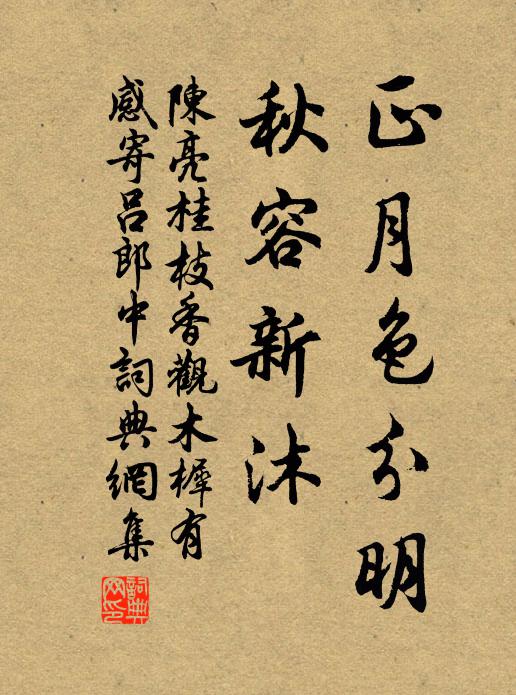 正月色分明
秋容新沐
陳亮桂枝香觀木樨有
感寄呂郎中詞典網集
詞典网印